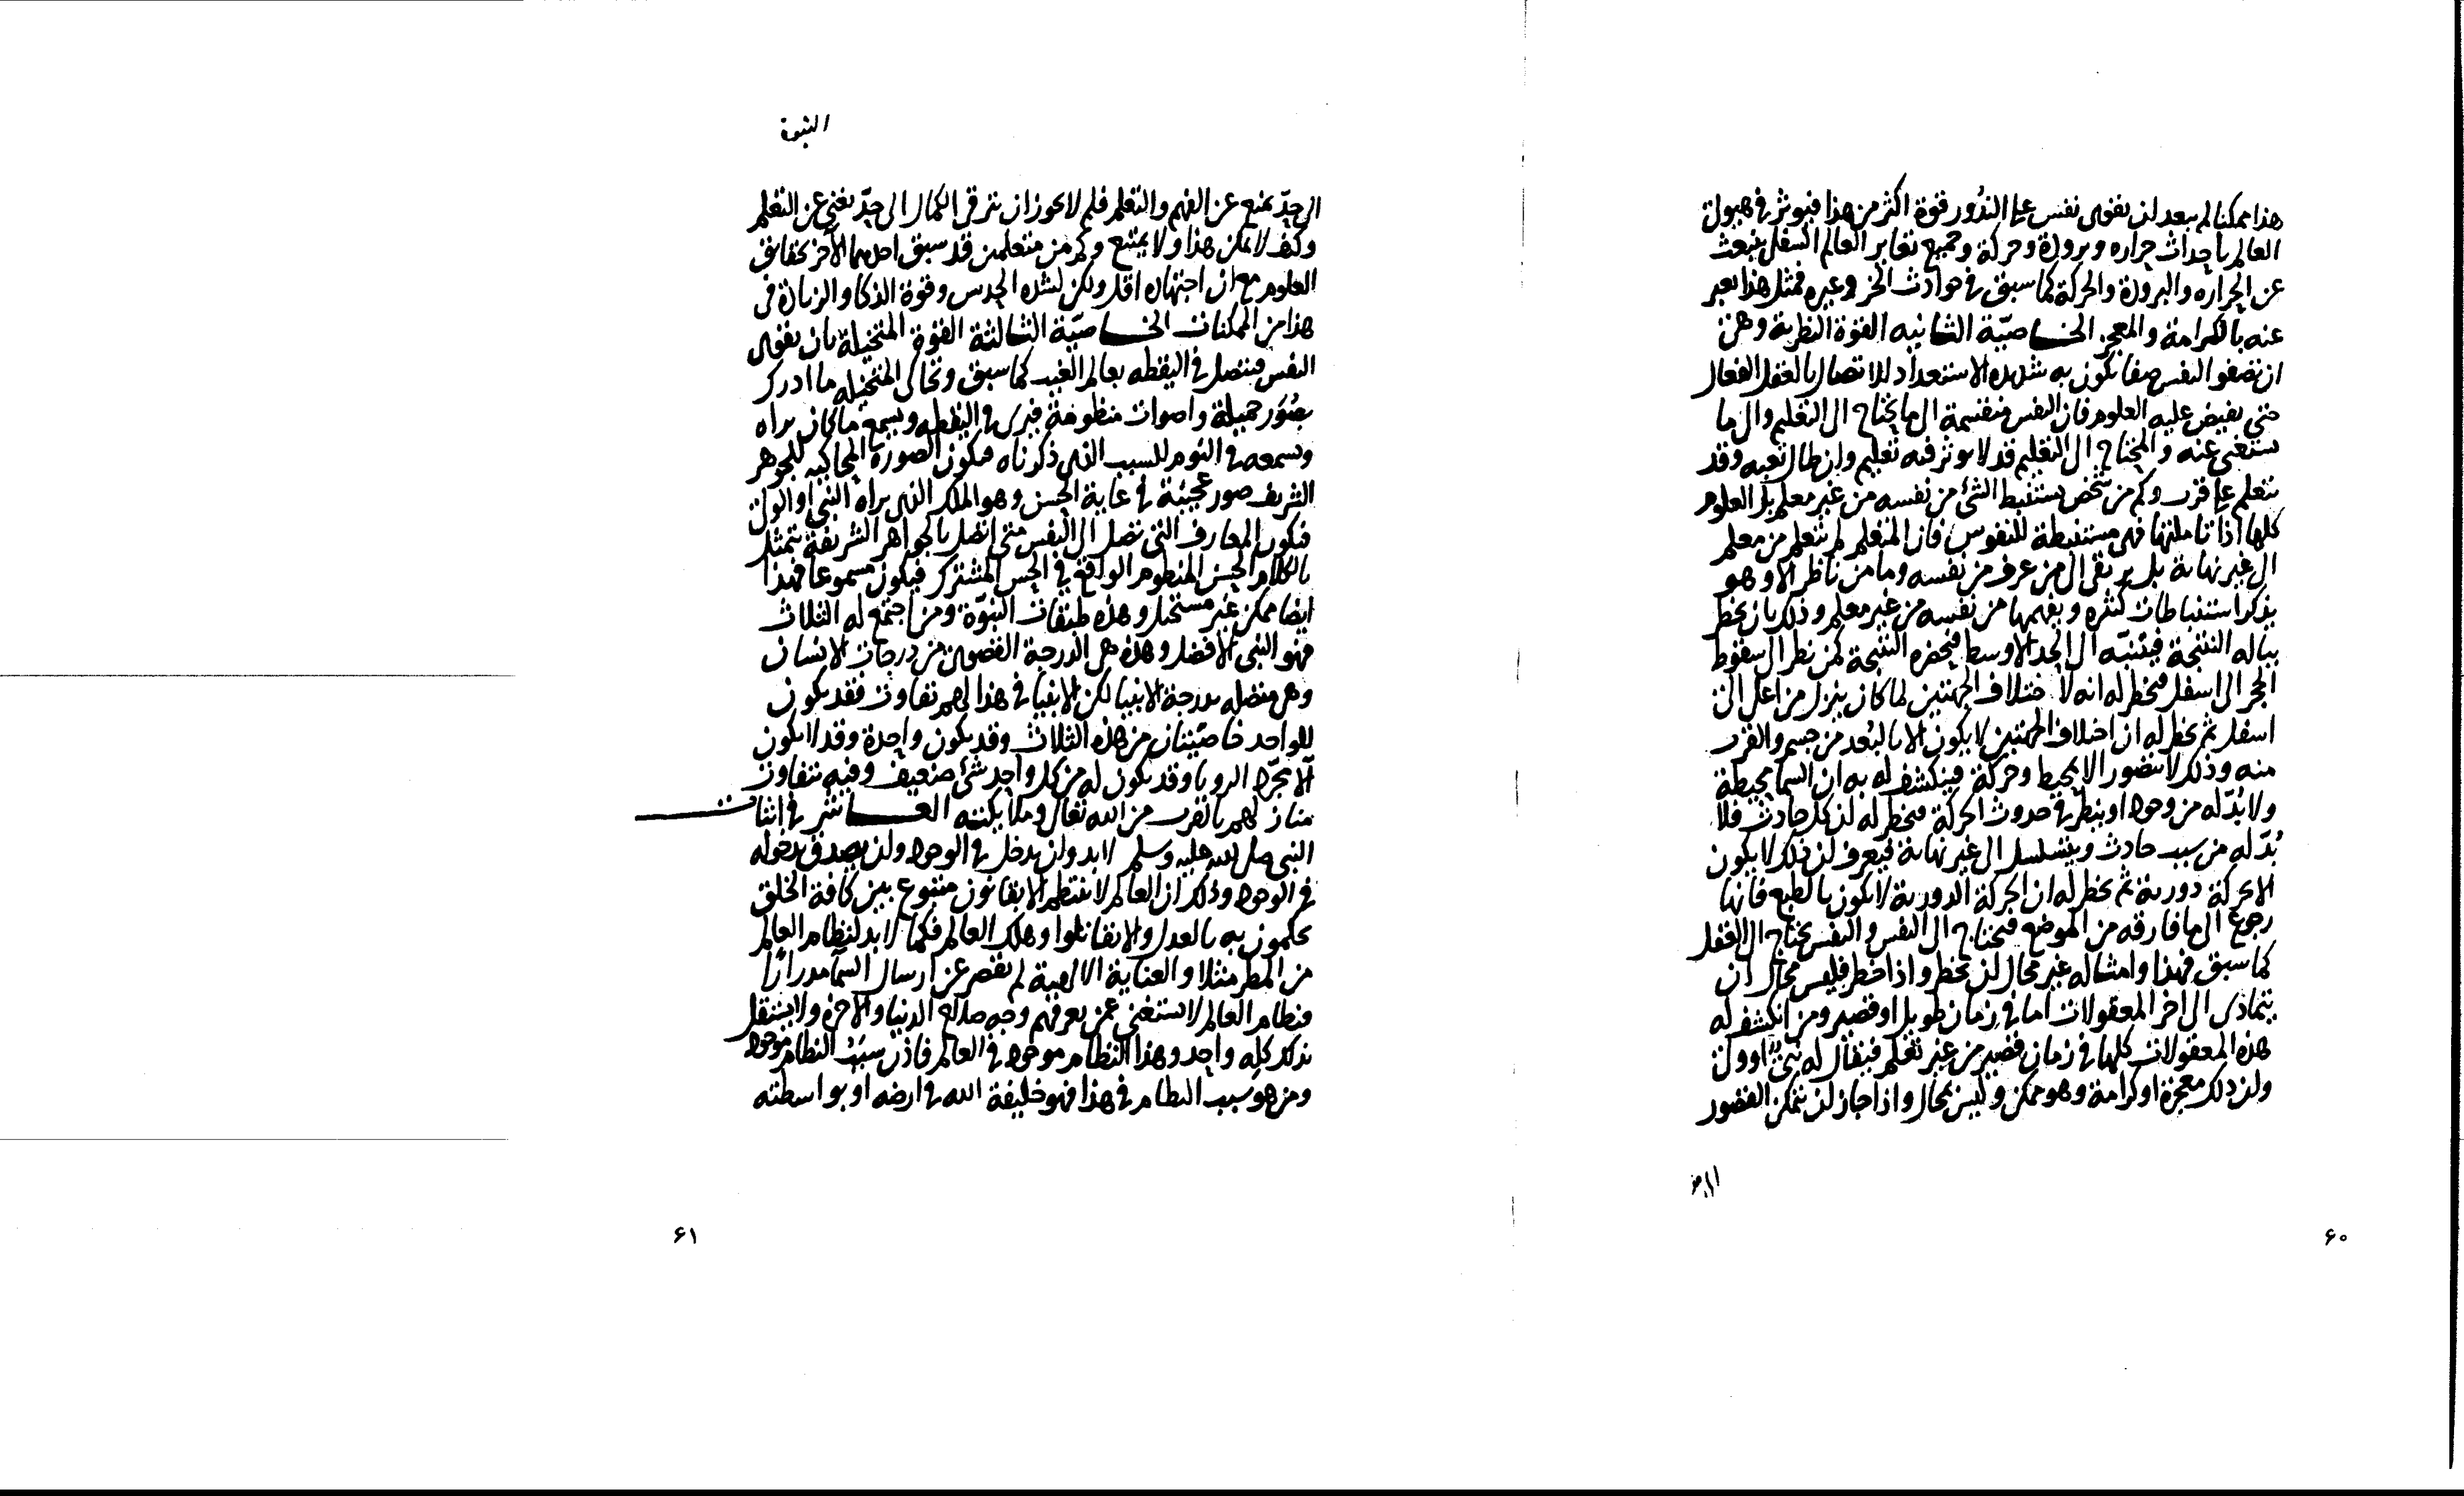 هذا ممكنا لم يبعد ان يقوى نفس على الندور قوة اكثر من هذا فيوثر في هيولى
العالم باحداث حراره وبرودة وحركة وجميع تغاير العالم السفلى ينبعث
عن الحراره والبرودة والحركة كما سبق في حوادث الجو وغيره فمثل هذا يعبر
عنه بالكرامة والمعجز الخـــاصيّة الثانيه القوة النظرية وهى
ان تصفو النفس صفا يكون به شديده الاستعداد للاتصال بالعقل الفعال
حتى يفيض عليه العلوم فان النفس منقسمة الى ما يحتاج الى التعليم والى ما
يستغنى عنه والمحتاج الى التعليم قد لا يوثر فيه تعليم وان طال تعبه وقد
يتعلم على قرب وكم من شخص يستنبط الشئ من نفسه من غير معلم بل العلوم
كلها اذا تاملتها فهى مستنبطة للنفوس فان المتعلم لم يتعلم من معلم
الى غير نهاية بل يرتقى الى من عرف من نفسه وما من ناظر الا وهو
يذكر استنباطات كثيره ويفهمها من نفسه من غير معلم وذلك بان يخطر
بباله النتيجة فيتنبّه الى الحد الاوسط فيحضره النتيجة كمن نظر الى سقوط
الحجر الى اسفل فيخطر له انه لا ختلاف الجهتين لما كان ينزل من اعلى الى
اسفل ثم يخطر له ان اختلاف الجهتين لا يكون الا بالبُعد من جسم والقرب
منه وذلك لا يتصور الا بمحيط وحركة فينكشف له به ان السما محيطة
ولا بُدّ له من وجود او ينظر في حدوث الحركة فيخطر له ان كل حادث فلا
بُدّ له من سبب حادث ويتسلسل الى غير نهاية فيعرف ان ذلك لا يكون
الا بحركة دورية ثم يخطر له ان الحركة الدورية لا يكون بالطبع فانها
رجوع الى ما فارقه من الموضع فيحتاج الى النفس والنفس يحتاج الى العقل
كما سبق فهذا وامثاله غير محال ان يخطر واذا خطر فليس محال ان
يتمادى الى اخر المعقولات اما في زمان طويل او قصير ومن انكشف له
هذه المعقولات كلها في زمان قصير من غير تعلم فيقال له نبىّ او ولى
وان ذلك معجزة او كرامة وهو ممكن وليس بمحال واذا جاز ان يتمكن القصور
٦٠
النبوة
الى حدّ يمنع عن الفهم والتعلم فلم لا يجوز ان يترقى الكمال الى حدّ يغنى عن التعلم
وكيف لا يمكن هذا ولا يمتنع وكم من متعلمين قد سبق احدهما الآخر بحقايق
العلوم مع ان اجتهاده اقل ولكن لشده الحدس وقوة الذكا والزيادة فى
هذا من الممكنات الخـــاصيّة الثالثة القوة المتخيلة بان يقوى
النفس فيتصل في اليقظه بعالم الغيب كما سبق وتحاكى المتخيله ما ادرك
بصُوَر جميلة واصوات منظومة فيرى في اليقظه ويسمع ما كان يراه
ويسمعه في النوم للسبب الذى ذكرناه فيكون الصورة المحاكيه للجوهر
الشريف صور عجيبة في غاية الحسن وهو الملك الذى يراه النبى او الولى
فيكون المعارف التى تصل الى النفس متى اتصل بالجواهر الشريفة يتمثل
بالكلام الحسن المنظوم الواقع في الحس المشترك فيكون مسموعا فهذا
ايضا ممكن غير مستحيل وهذه طبقات النبوّة ومن اجتمع له الثلاث
فهو النبى الافضل وهذه هى الدرجة القصوى من درجات الانسان
وهى متصله بدرجة الانبيا لكن الانبيا في هذا لهم تفاوت فقد يكون
للواحد خاصّيتان من هذه الثلاث وقد يكون واحدة وقد لا يكون
الّا مجرّد الرويا وقد يكون له من كل واحد شئ ضعيف وفيه يتفاوت
منازلهم بالقرب من الله تعالى وملايكته العـــاشر في اثبات
النبى صلى الله عليه وسلم لا بد وان يدخل في الوجود وان يصدق بدخوله
في الوجود وذلك ان العالم لا ينتظم الا بقانون متبوع بين كافة الخلق
يحكمون به بالعدل والا تقاتلوا وهلك العالم فكما لا بد لنظام العالم
من المطر مثلا والعناية الالهية لم يقصر عن ارسال السّما مدرارًا
فنظام العالم لا يستغنى عمن يعرفهم وجه صلاح الدنيا والاخره ولا يستقل
بذلك كله واحد وهذا النظام موجود في العالم فاذن سببُ النظام موجود
ومن هو سبب النظام في هذا فهو خليفة الله في ارضه او بواسطته
٦١